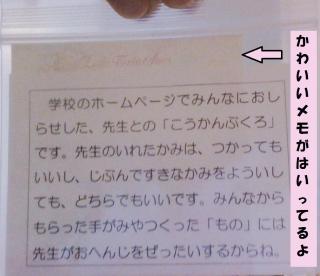 かわいいメモがはいってるよ
学校のホームページでみんなにおし
らせした、先生との「こうかんぶくろ」
です。先生のいれたかみは、つかっても
いいし、じぶんですきなかみをようい し
ても、どちらでもいいです。みんなから
もらった手がみやつくった「もの」には
先生がおへんじをぜったいするからね。